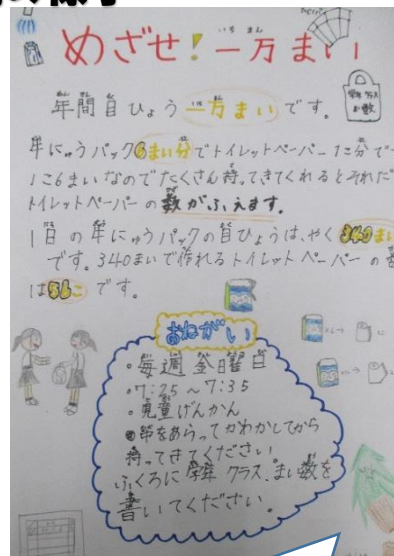 めざせ!一万まい
年間目ひょう一万まいです。
牛にゅうパック6まい分でトイレットペーパー1こ分で
1こ6まいなのでたくさん持ってきてくれるとそれだ
トイレットペーパーの数がふえます。
1日の牛にゅうパックの目ひょうは、やく340まい
です。340まいで作れるトイレットペーパーの
は56こです。
おねがい
・毎週金曜日
・7:25~7:35
・児童げんかん
・中をあらってかわかしてから
持ってきてください。
ふくろに学年 クラス まい数を
書いてください。